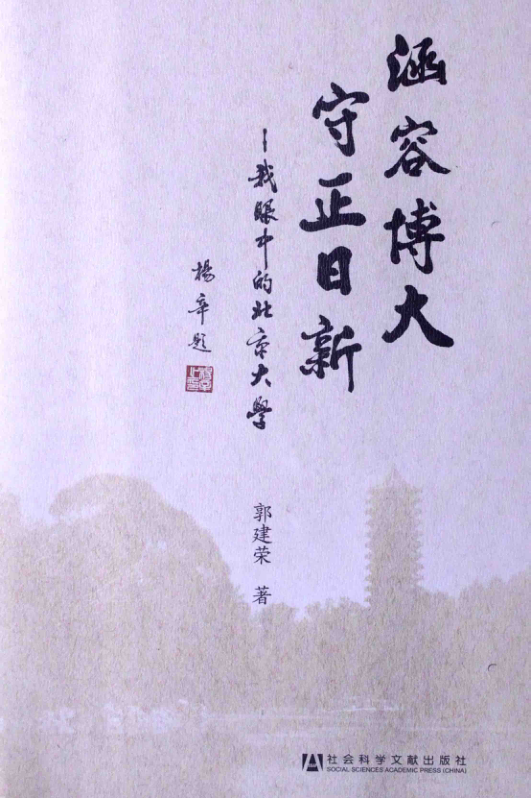 涵容博大
守正日新
—我眼中的北京大學
楊辛題
郭建荣 著
社会科学文献出版社
SOCIAL SCIENCES ACADEMIC PRESS (CHINA)